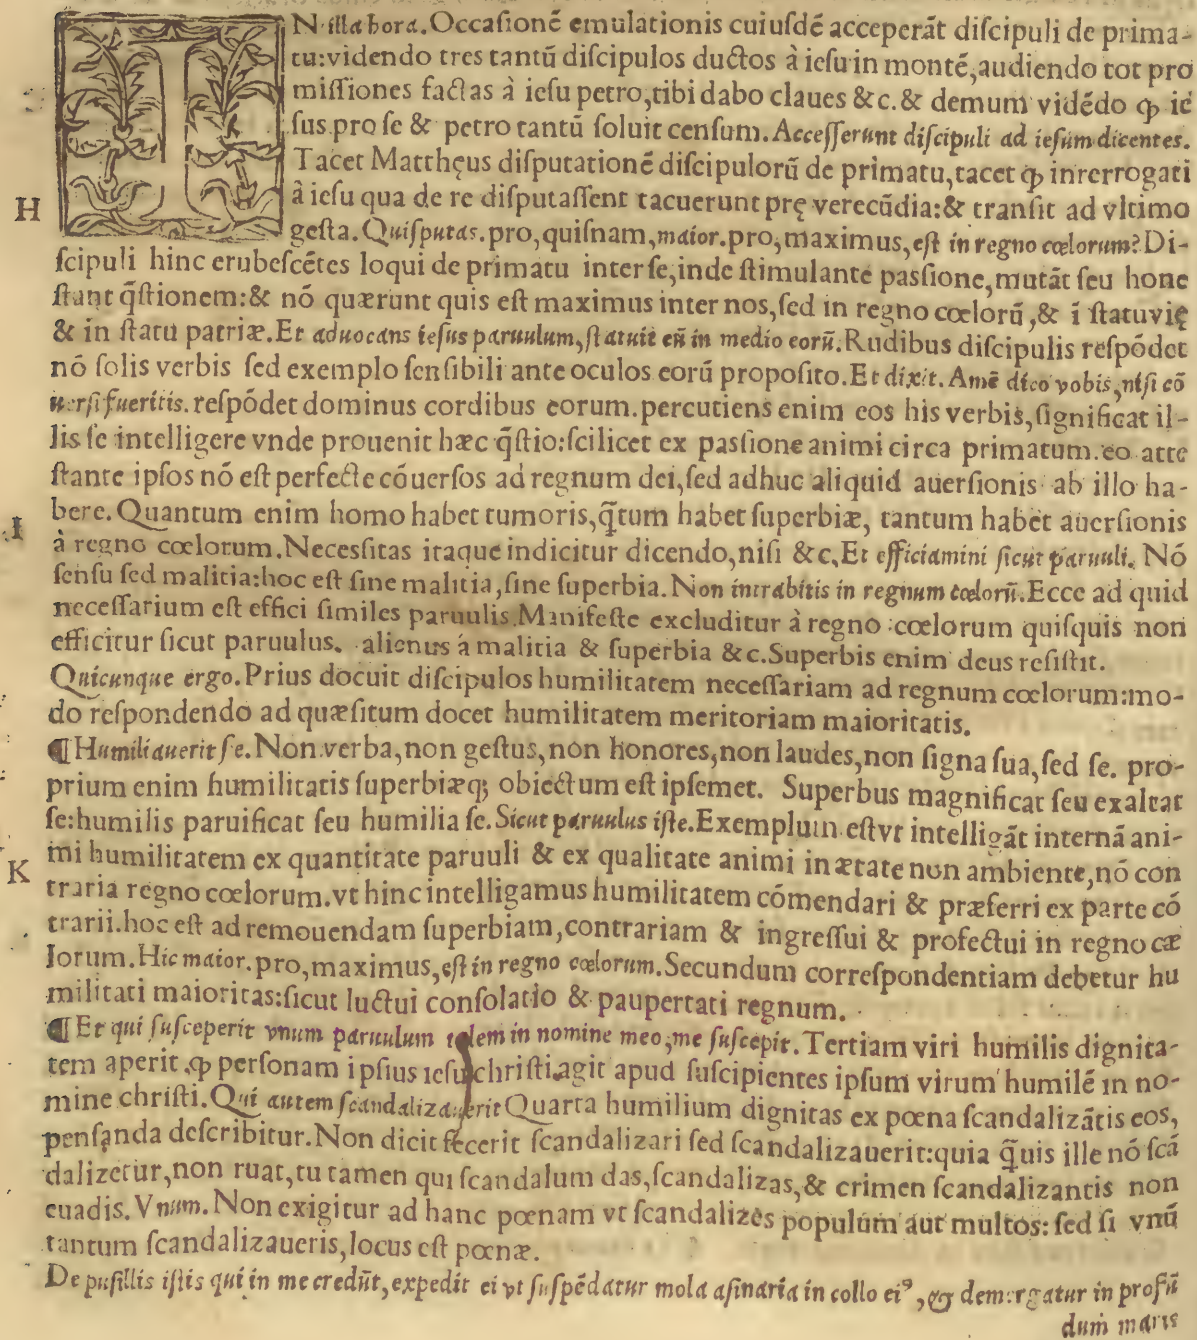 IN illa hora. Occaſionẽ emulationis cuiuſdẽ acceperãt diſcipuli de prima-
tu: videndo tres tantũ diſcipulos ductos à ieſu in montẽ, audiendo tot pro
miſſiones factas à ieſu petro, tibi dabo claues &c. & demum vidẽdo ꝙ ie
ſus pro ſe & petro tantũ ſoluit cenſum. Acceſſerunt diſcipuli ad ieſum dicentes.
Tacet Matthęus diſputationẽ diſcipulorũ de primatu, tacet ꝙ inrerrogati
H à ieſu qua de re diſputaſſent tacuerunt prę verecũdia: & tranſit ad vltimo
geſta. Quiſputas. pro, quiſnam, maior. pro, maximus, eſt in regno cœlorum? Di-
ſcipuli hinc erubeſcẽtes loqui de primatu inter ſe, inde ſtimulante paſſione, mutãt ſeu hone
ſtant q̃ſtionem: & nõ quærunt quis eſt maximus inter nos, ſed in regno cœlorũ, & ĩ ſtatu vię
& in ſtatu patriæ. Et aduocans ieſus paruulum, ſtatuit eũ in medio eorũ. Rudibus diſcipulis reſpõdet
nõ ſolis verbis ſed exemplo ſenſibili ante oculos eorũ propoſito. Et dixit. Amẽ dico vobis, niſi cõ
uerſi fueritis. reſpõdet dominus cordibus eorum. percutiens enim eos his verbis, ſignificat il-
lis ſe intelligere vnde prouenit hæc q̃ſtio: ſcilicet ex paſſione animi circa primatum. eo atte
ſtante ipſos nõ eſt perfecte cõuerſos ad regnum dei, ſed adhuc aliquid auerſionis ab illo ha-
bere. Quantum enim homo habet tumoris, q̃tum habet ſuperbiæ, tantum habet auerſionis
I à regno cœlorum. Neceſſitas itaque indicitur dicendo, niſi &c. Et efficiamini ſicut paruuli. Nõ
ſenſu ſed malitia: hoc eſt ſine malitia, ſine ſuperbia. Non intrabitis in regnum cœlorũ. Ecce ad quid
neceſſarium eſt effici ſimiles paruulis. Manifeſte excluditur à regno cœlorum quiſquis non
efficitur ſicut paruulus. alienus á malitia & ſuperbia &c. Superbis enim deus reſiſtit.
Quicunque ergo. Prius docuit diſcipulos humilitatem neceſſariam ad regnum cœlorum: mo-
do reſpondendo ad quæſitum docet humilitatem meritoriam maioritatis.
¶ Humiliauerit ſe. Non verba, non geſtus, non honores, non laudes, non ſigna ſua, ſed ſe. pro-
prium enim humilitatis ſuperbiæq; obiectum eſt ipſemet. Superbus magnificat ſeu exaltat
ſe: humilis paruificat ſeu humilia ſe. Sicut paruulus iſte. Exemplum eſt vt intelligãt internã ani-
K mi humilitatem ex quantitate paruuli & ex qualitate animi in ætate non ambiente, nõ con
traria regno cœlorum. vt hinc intelligamus humilitatem cõmendari & præferri ex parte cõ
trarii. hoc eſt ad remouendam ſuperbiam, contrariam & ingreſſui & profectui in regno cæ
lorum. Hic maior. pro, maximus, eſt in regno cœlorum. Secundum correſpondentiam debetur hu
militati maioritas: ſicut luctui conſolatio & paupertati regnum.
¶ Et qui ſuſceperit vnum paruulum talem in nomine meo, me ſuſcepit. Tertiam viri humilis dignita-
tem aperit. ꝙ perſonam ipſius ieſu chriſti agit apud ſuſcipientes ipſum virum humilẽ in no-
mine chriſti. Qui autem ſcandalizauerit Quarta humilium dignitas ex pœna ſcandalizãtis eos,
penſanda deſcribitur. Non dicit fecerit ſcandalizari ſed ſcandalizauerit: quia q̃uis ille nõ ſcã
dalizetur, non ruat, tu tamen qui ſcandalum das, ſcandalizas, & crimen ſcandalizantis non
euadis. Vnum. Non exigitur ad hanc pœnam vt ſcandalizes populum aut multos: ſed ſi vnũ
tantum ſcandalizaueris, locus eſt pœnæ.
De puſillis iſtis qui in me credũt, expedit ei vt ſuſpẽdatur mola aſinaria in collo eiꝰ, & demergatur in profũ
dum maris